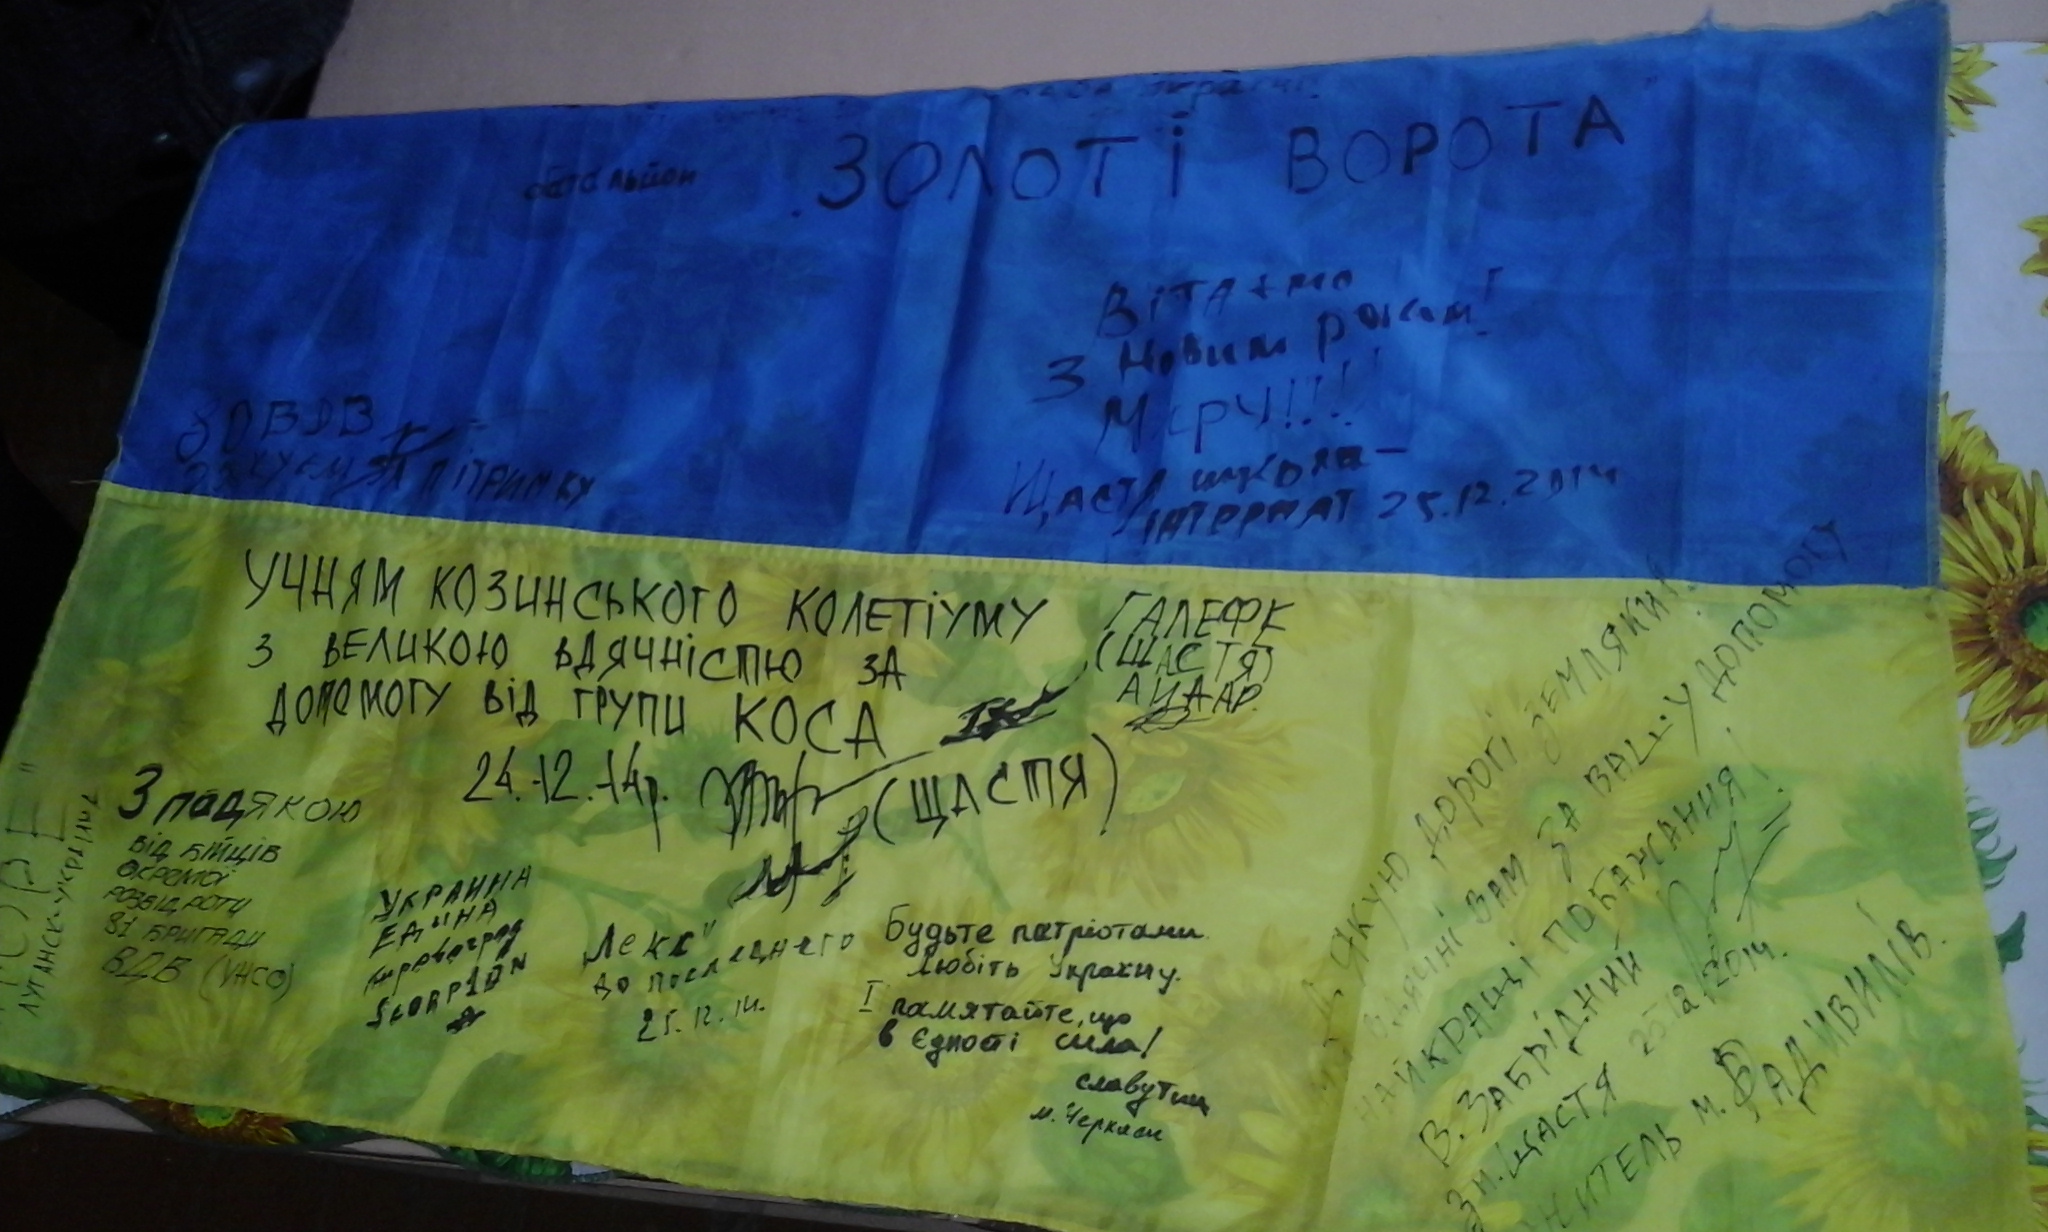 батальйон "ЗОЛОТІ ВОРОТА"
Вітаємо
З Новим роком!
Миру!!!!
Щастя школа-
інтернат 25.12.2014
ЗА ПІТРИМКУ
УЧНЯМ КОЗИНСЬКОГО КОЛЕГІУМУ
З ВЕЛИКОЮ ВДЯЧНІСТЮ ЗА
ДОПОМОГУ ВІД ГРУПИ КОСА
24.-12.-14р. (ЩАСТЯ)
ГАЛЕФК
(ЩАСТЯ)
АЙДАР
З подякою
ВІД БІЙЦІВ
ОКРЕМОЇ
РОЗВІДРОТИ
81 БРИГАДИ
ВДВ (УНСО)
ЛУГАНСК-УКРАЇНА
УКРАИНА
ЕДЫНА
кировоград
SCORPION
"Лекс"
до последнего
25.12.14.
Будьте патріотами.
Любіть Україну.
І памятайте, що
в Єдності сила!
славутич
м. Черкаси
ДЯКУЮ ДОРОГІ ЗЕМЛЯКИ!
ВДЯЧНІ ВАМ ЗА ВАШУ ДОПОМОГУ
НАЙКРАЩІ ПОБАЖАННЯ!
В. ЗАБРІДНИЙ
м. ЩАСТЯ 25.12.2014.
ЖИТЕЛЬ м. РАДИВИЛІВ.